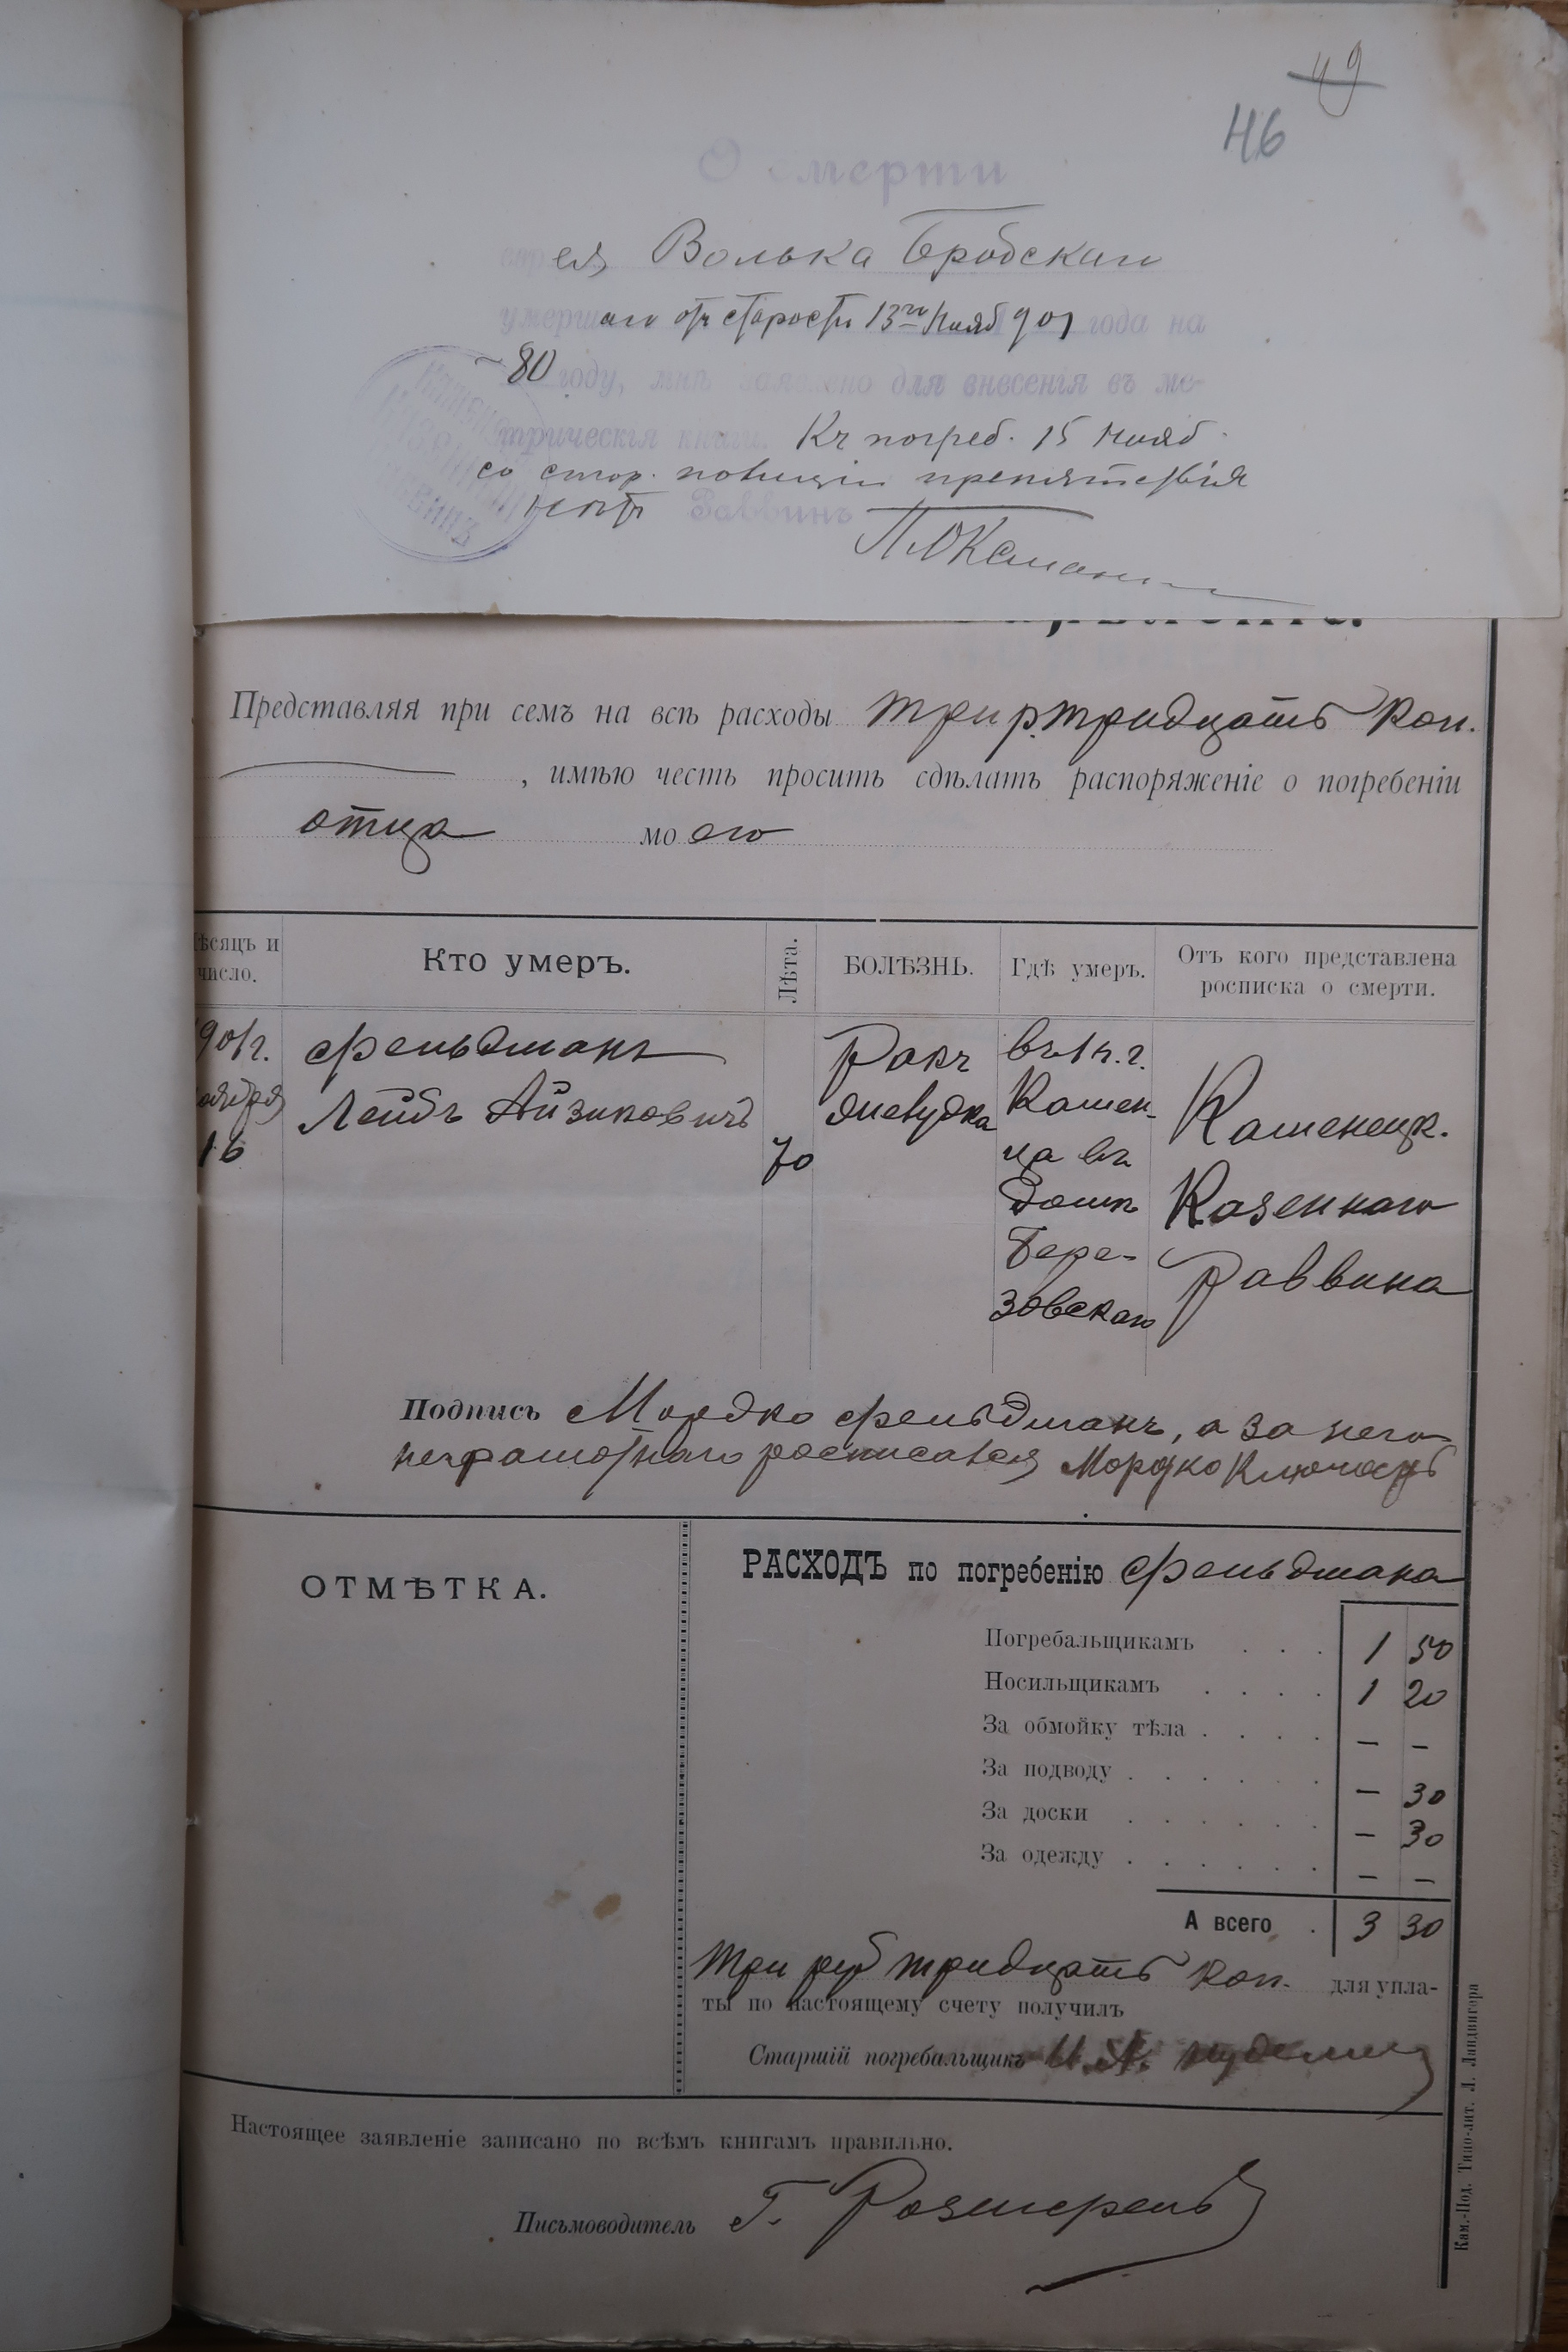 49
46
О смерти
ея Волька Бродскаго
умершаго отъ старости 13го Нояб 901 года на
80 году, мнѣ заявлено для внесенія въ ме-
трическія книги. Къ погреб. 15 Нояб.
со стор. полиціи препятствія
нѣтъ Раввинъ
Представляя при семъ на всѣ расходы три р. тридцать коп.
, имѣю честь просить сдѣлать распоряженіе о погребеніи
отца моего
Мѣсяцъ и число.
Кто умеръ.
Лѣта.
БОЛѢЗНЬ.
Гдѣ умеръ.
Отъ кого представлена росписка о смерти.
1901г.
ноября
16
Фельдманъ
Лейбъ Айзиковичъ
70
Ракъ
желудка
Камен-
ца въ
домѣ
Бере-
зовскаго
Каменецк.
Казеннаго
Раввина
Подпись Мордко Фельдманъ, а за него
неграмотнаго росписался Мордко
ОТМѢТКА.
РАСХОДЪ по погребенію Фельдмана
Погребальщикамъ . . . 1 50
Носильщикамъ . . . . 1 20
За обмойку тѣла . . . . – –
За подводу . . . . . . – 30
За доски . . . . . . – 30
За одежду . . . . . . – –
А всего . 3 30
Три руб тридцать коп. для упла-
ты по настоящему счету получилъ
Старшій погребальщикъ
Настоящее заявленіе записано по всѣмъ книгамъ правильно.
Письмоводитель Г.
Кам.-Под. Типо-лит. Л. Ландвигера